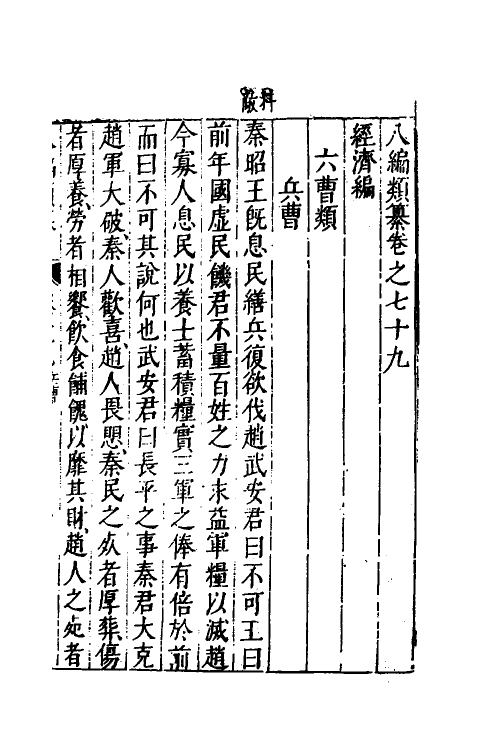 科敵
八編類纂卷之七十九
經濟編
六曹類
兵曹
秦昭王旣息民繕兵復欲伐趙武安君曰不可王曰
前年國虛民饑君不量百姓之力求益軍糧以滅趙
今寡人息民以養士蓄積糧實三軍之俸有倍於前
而曰不可其說何也武安君曰長平之事秦君大克
趙軍大破秦人歡喜趙人畏思秦民之死者厚葬傷
者厚養勞者相饗飲食餔餽以靡其財趙人之死者